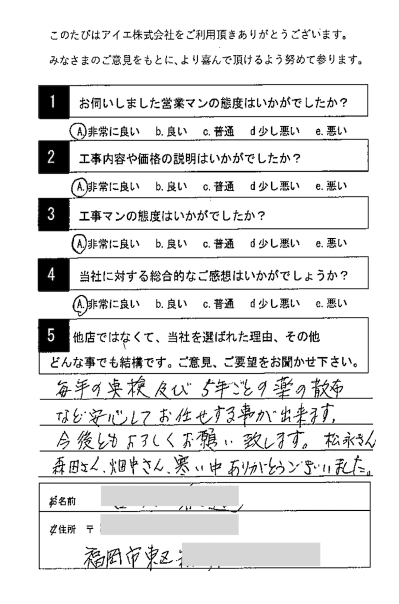 このたびはアイエ株式会社をご利用頂きありがとうございます。
みなさまのご意見をもとに、より喜んで頂けるよう努めて参ります。
1 お伺いしました営業マンの態度はいかがでしたか？
A.非常に良い b.良い c.普通 d少し悪い e.悪い
2 工事内容や価格の説明はいかがでしたか？
A.非常に良い b.良い c.普通 d少し悪い e.悪い
3 工事マンの態度はいかがでしたか？
A.非常に良い b.良い c.普通 d少し悪い e.悪い
4 当社に対する総合的なご感想はいかがでしょうか？
A.非常に良い b.良い c.普通 d少し悪い e.悪い
5 他店ではなくて、当社を選ばれた理由、その他
どんな事でも結構です。ご意見、ご要望をお聞かせ下さい。
毎年の点検及び5年ごとの薬の散布
など安心してお任せする事が出来ます。
今後ともよろしくお願い致します。松永さん
森田さん、畑中さん、寒い中ありがとうございました。
お名前
ご住所 〒
福岡市東区